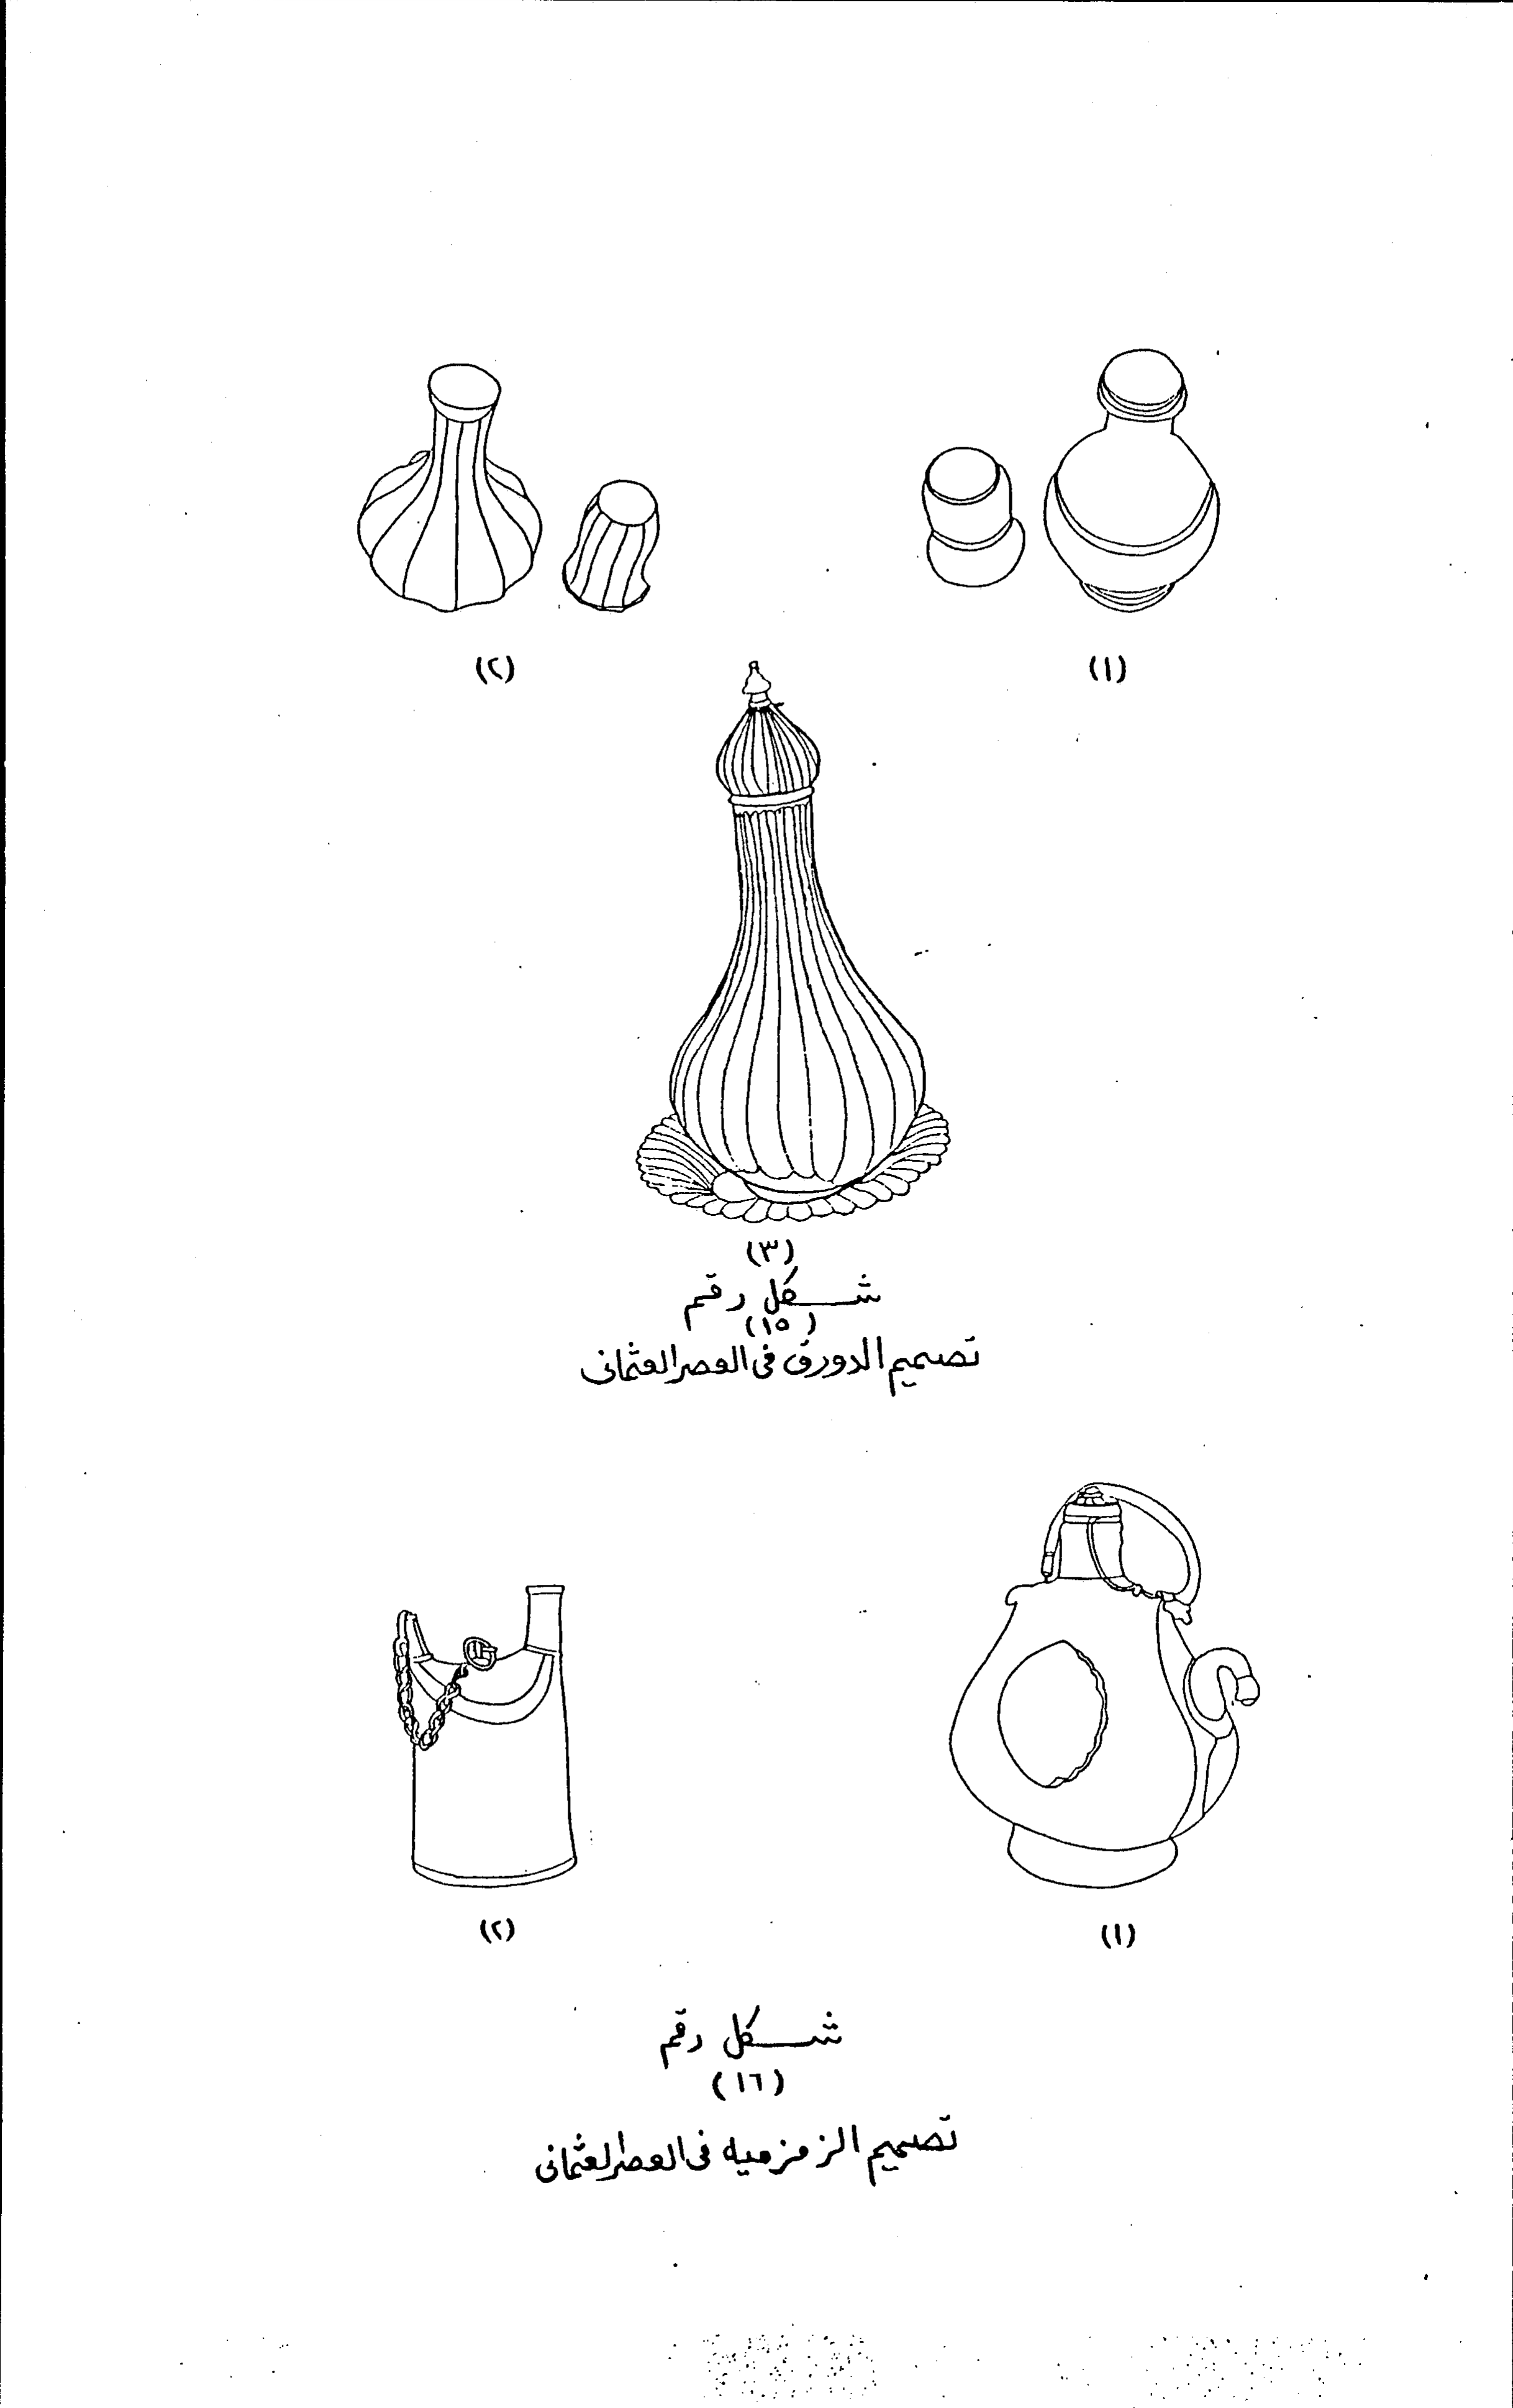 (١)
(٢)
(٣)
شكل رقم
(١٥)
تصميم الدورق فى العصر العثمانى
(١)
(٢)
شكل رقم
(١٦)
تصميم الزمزميه فى العصر العثمانى